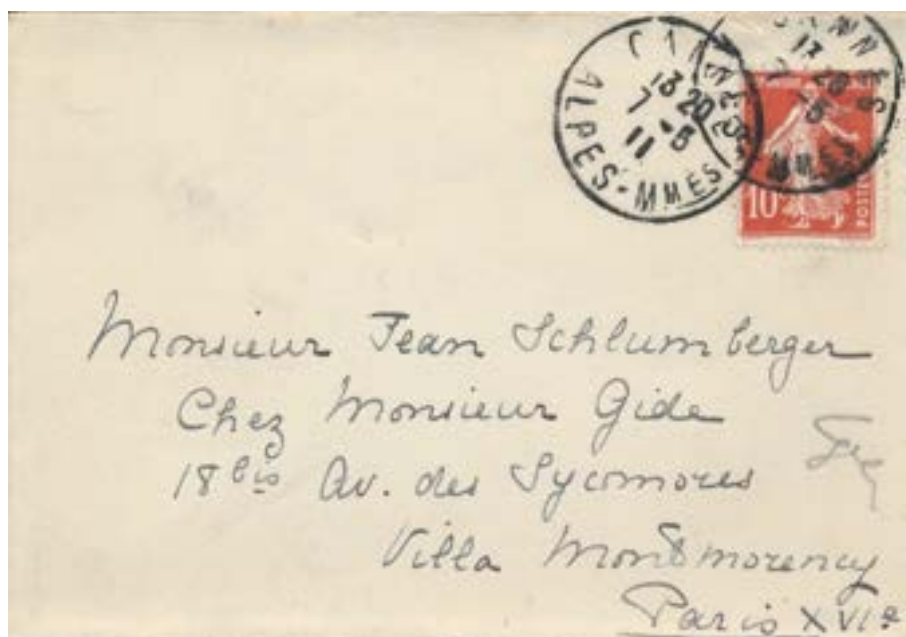 CANNES
13 20
7 -5
11
ALPES-MMES
CANNES
13 20
7 -5
MMES
10
POSTES
Monsieur Jean Schlumberger
Chez Monsieur Gide
18 bis Av. des Sycomores
Villa Montmorency
Paris XVIe